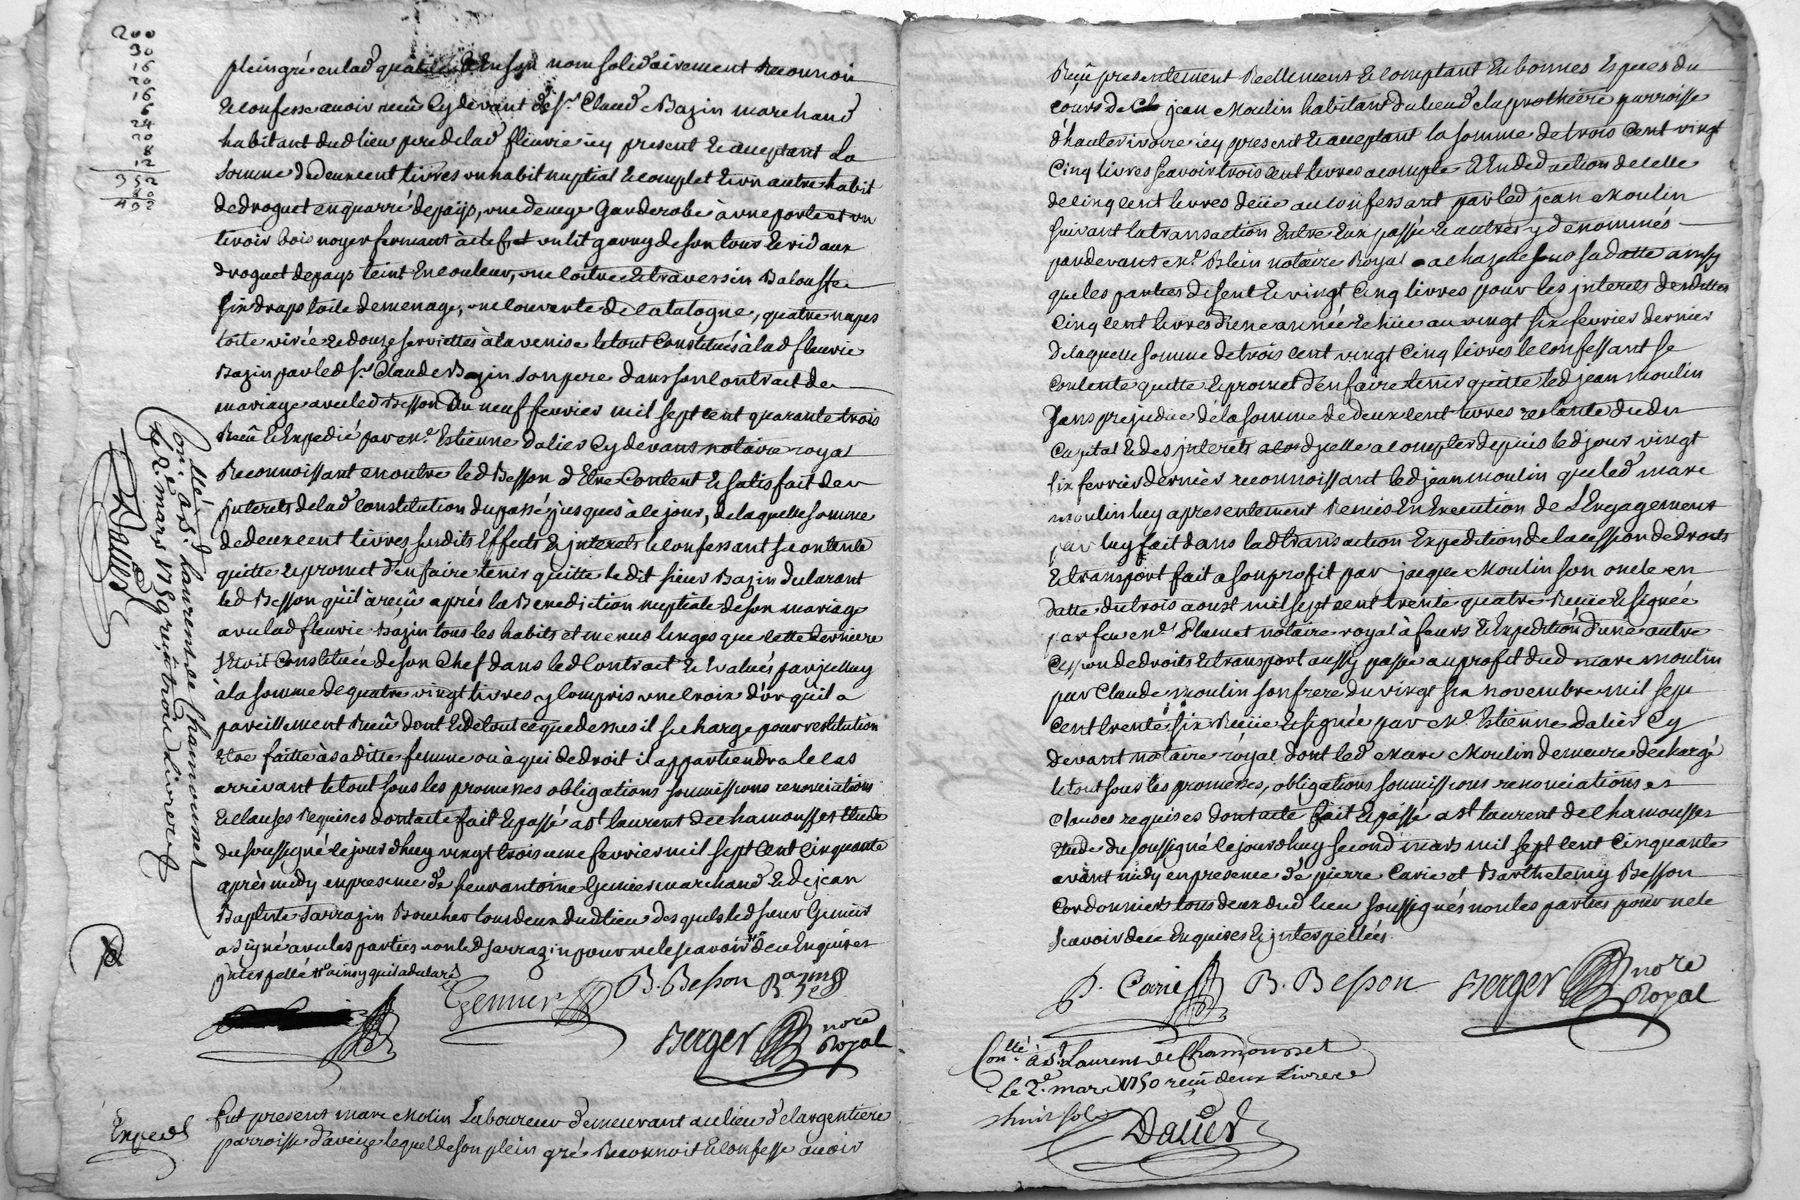 200
30
16
20
16
6
24
20
8
12
352
50
402
plein gré en lad qualité et en son nom solidairement Reconnoit
et confesse avoir reçû Cy devant de Sr Claude Bazin marchand
habitant dud lieu pere de lad fleurie icy present et acceptant La
Somme de deux cent livres un habit nuptial et complet et un autre habit
de droguet en quarré de païs, une demye Garderobe à une porte et un
tiroir bois noyer fermant à clef et un lit garny de son tour et rid aux
droguet de pays teint En couleur, une coitre et traversin Balouffe
Six draps toile de menage, une couverte de Catalogne, quatre napes
toile virée et douze serviettes à la venise le tout Constitués à lad fleurie
Bazin par led Sr Claude Bazin son pere dans son Contract de
mariage avec led Besson Du neuf fevrier mil sept cent quarante trois
Reçû et Expedié par me Estienne Dalier Cy devant notaire royal
Reconnoissant en outre led Besson d'Etre Content et satisfait des
jnterets de lad Constitution du passé jusques à ce jour, de laquelle somme
de deux cent livres susdits Effects et jnterets le confessant se contente
quitte et promet d'en faire tenir quitte le dit sieur Bazin declarant
led Besson qu'il à reçû aprés la Benediction nuptiale de son mariage
avec lad fleurie Bazin tous les habits et menus linges que cette derniere
s'etoit Constituée de son Chef dans led Contract et Evalués par jcelluy
a la somme de quatre vingt livres y Compris une Croix d'or qu'il a
pareillement Reçû dont et de tout ce que dessus il se charge pour restitution
Etre faitte à sa ditte femme ou à qui de droit il appartiendra le cas
arrivant le tout sous les promesses obligations soumissions renonciations
et clauses Requises dont acte fait et passé a St laurent de chamousset Etude
du soussigné le jourdhuy vingt troisieme fevrier mil sept Cent Cinquante
aprés midy en presence de sieur antoine Genier marchand et de jean
Baptiste Sarrazin Boucher tous deux dud lieu des quels led sieur Genier
a signé avec les parties non led Sarrazin pour ne le scavoir de ce Enquis et
jnterpellé ainsy qu'il a declaré
Genier B. Besson Bazin
Berger nore Royal
Conllé à St laurent de Chamousset
le 2e mars 1750 reçû trois Livres
Dalier
Exped
fut present marc Molin Laboureur demeurant au lieu de largentiere
parroisse d'aveize lequel de son plein gré Reconnoit et confesse avoir
Reçû presentement Reellement et comptant En bonnes Especes du
cours de jean Moulin habitant du lieu de laprothiere parroisse
d'haute rivoire icy present et acceptant la somme de trois Cent vingt
Cinq livres Scavoir trois cent livres a compte et En deduction de celle
de cinq cent livres deüe au confessant par led jean Moulin
suivant la transaction Entre Eux passé et autres y denommés
par devant me Blein notaire Royal a chazelle sous sa datte ainsy
que les parties disent et vingt Cinq livres pour les jnterets desdittes
Cinq cent livres d'une année echüe au vingt six fevrier dernier
de laquelle somme de trois cent vingt Cinq livres le confessant se
Contente quitte et promet d'en faire tenir quitte led jean Moulin
Sans prejudice de la somme de deux cent livres restante dudit
Capital et des jnterets d'jcelle a compter depuis led jour vingt
six fevrier dernier reconnoissant led jean moulin que led marc
moulin luy a presentement Remis En Execution de L'Engagement
par luy fait dans lad transaction Expedition de la cession de droits
et transport fait a son profit par jacques Moulin son oncle en
datte du trois aoust mil sept cent trente quatre Reçüe et signée
par feu me notaire royal à feurs et Expedition d'une autre
Cession de droits et transport aussy passé au profit dud marc moulin
par Claude Moulin son frere du vingt six novembre mil sept
Cent trente six Reçüe et signée par me Estienne Dalier Cy
devant notaire royal dont led Marc Moulin demeure dechargé
le tout sous les promesses, obligations soumissions renonciations et
clauses requises dont acte fait et passé a St laurent de Chamousset
Etude du soussigné le jourdhuy second mars mil sept cent Cinquante
avant midy en presence de pierre Carie et Barthelemy Besson
Cordonniers tous deux dud lieu soussignés non les parties pour ne le
Scavoir de ce Enquises et jnterpellées
P. Carie B. Besson Berger nore Royal
Conllé à St Laurent de Chamousset
le 2e mars 1750 reçû deux Livres
huit sols
Dalier